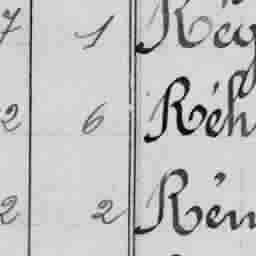 7 1 Rég
2 6 Réh
2 2 Rém